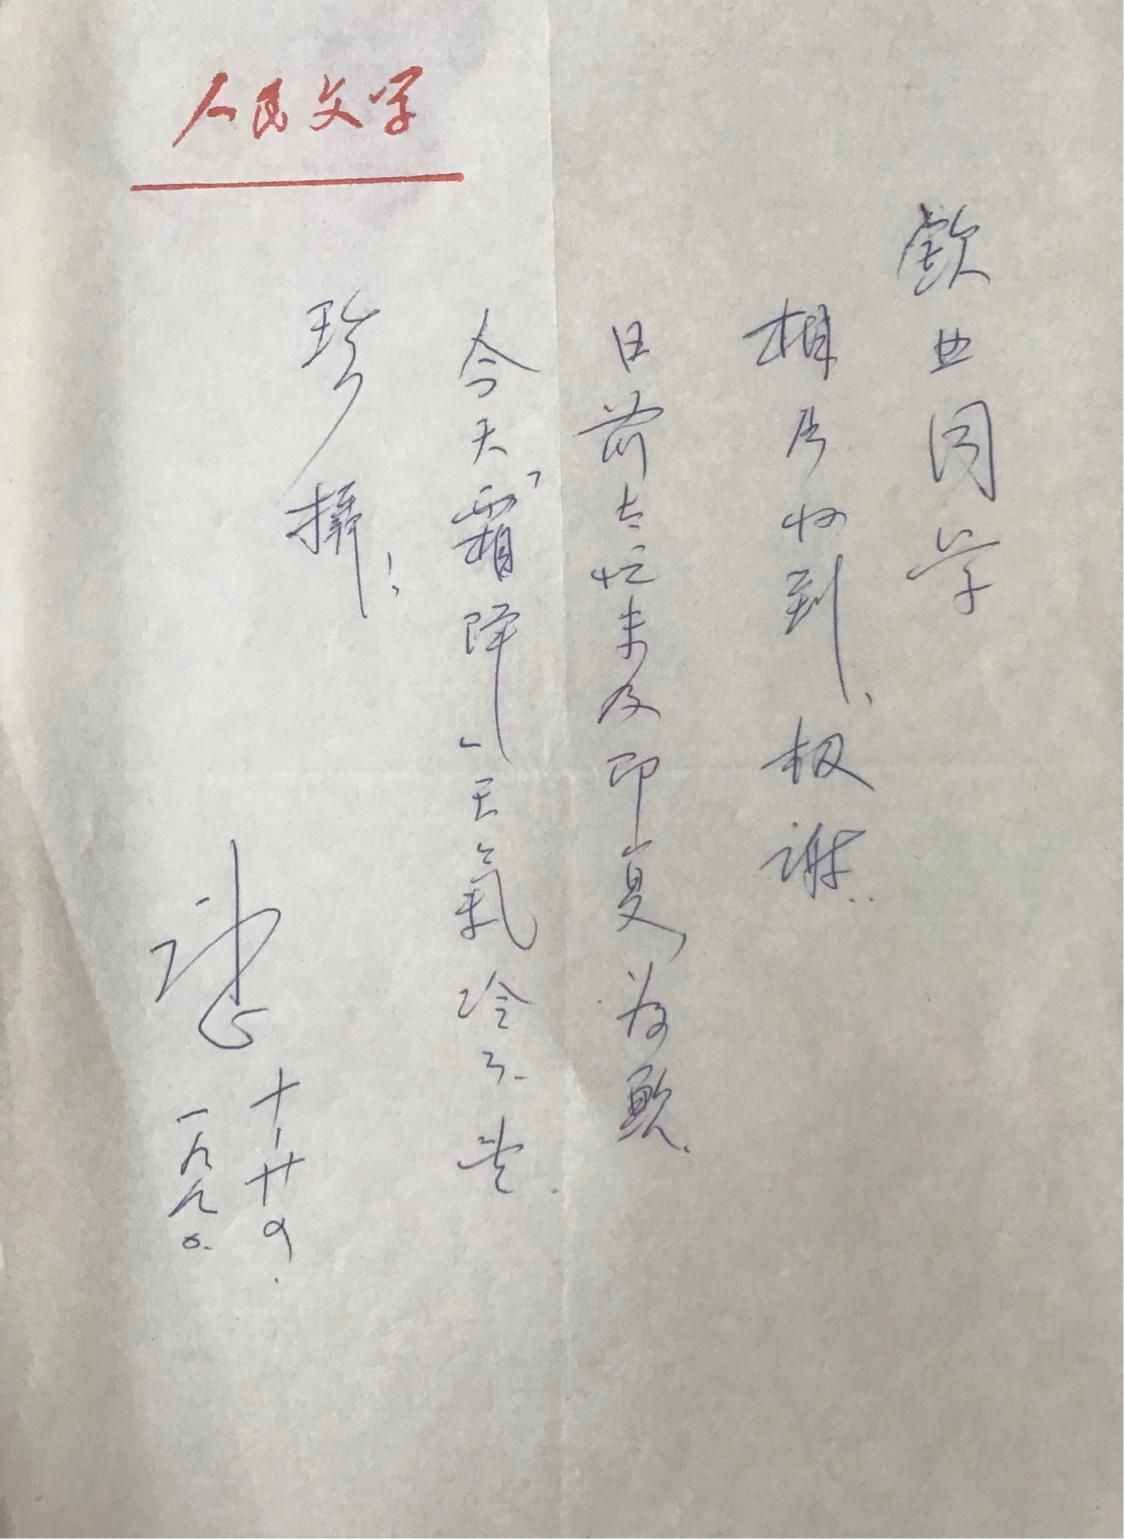 人民文学
钦业同学
相片收到、极谢.
日前太忙未及即复,为歉.
今天“霜降”、天氣冷了.望
珍摄!
十·廿四.
一九九〇.